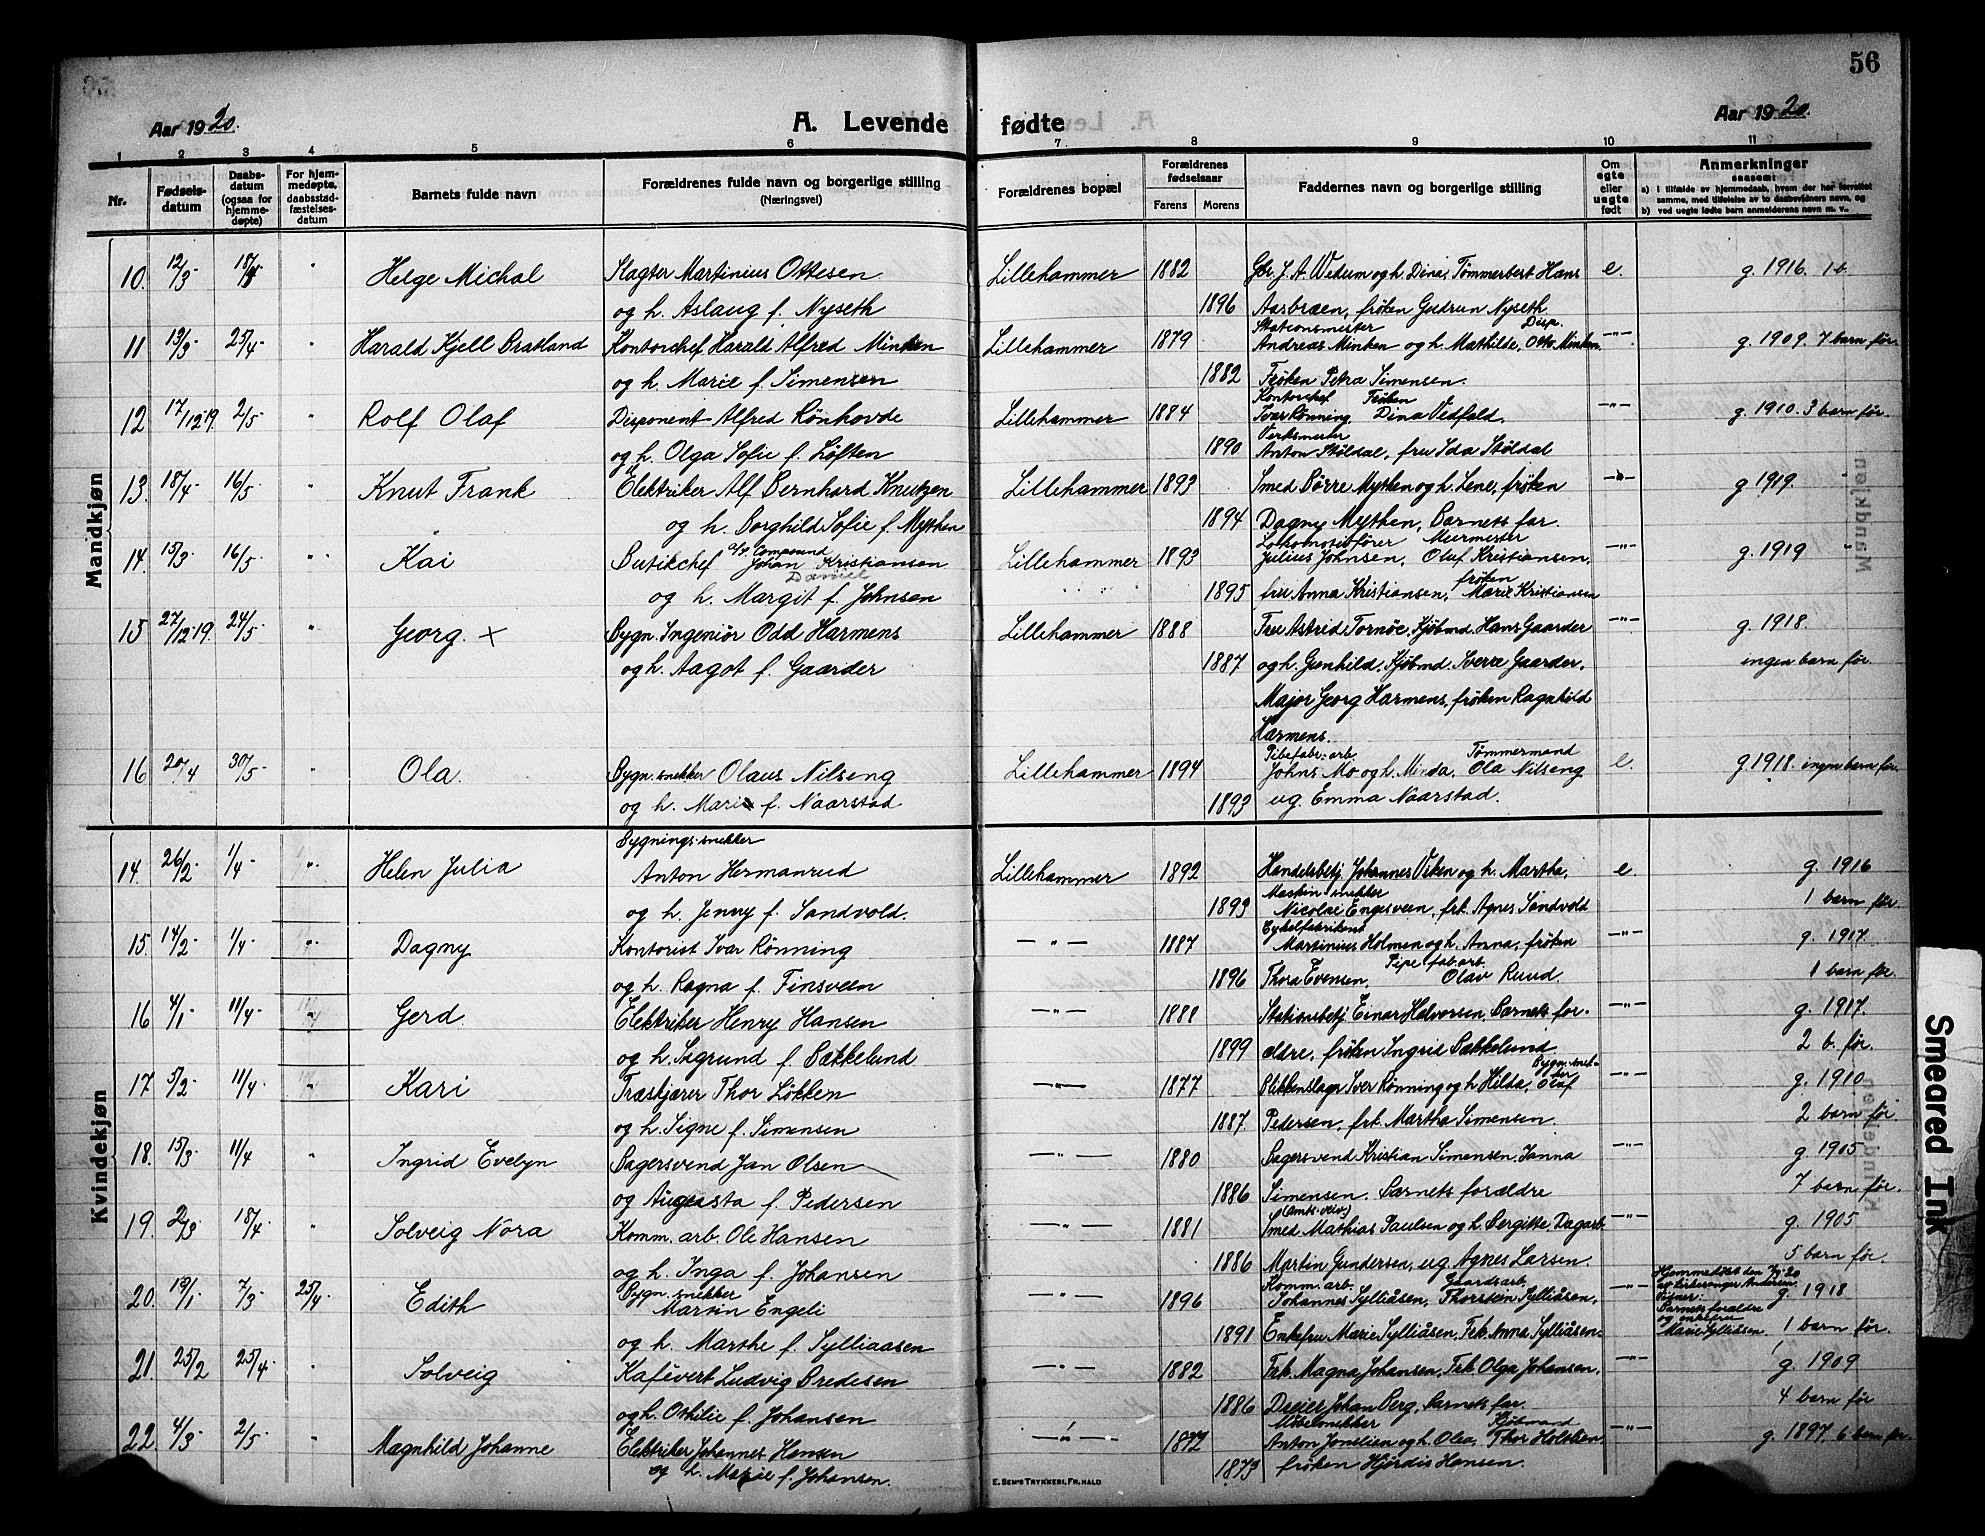 56
Aar 1920.
A. Levende fødte
Aar 1920.
1 2 3 4 5 6 7 8 9 10 11
Nr.
Fødsels-
datum
Daabs-
datum
(ogsaa for
hjemme-
døpte)
For hjem-
medøpte,
daabsstad-
fæstelses-
datum
Barnets fulde navn
Forældrenes fulde navn og borgerlige stilling
(Næringsvei)
Forældrenes bopæl
Forældrenes
fødselsaar
Farens Morens
Faddernes navn og borgerlige stilling
Om
egte
eller
uegte
født
Anmerkninger
saasom:
a) i tilfælde av hjemmedaab, hvem der har forrettet
samme, med tilføielse av to daabsvidners navn, og
b) ved uegte fødte barn anmelderens navn m. v.
Mandkjøn
10. 12/3- 18/4- " Helge Michal Slagter Martinius Ottesen Lillehammer 1882 Gbr. J. A. Vedum og h. Dina, Tømmerbest Hans e. g. 1916. 1 b.
og h. Aslaug f. Nyseth 1896 Aasbræen, frøken Gudrun Nyseth
Stationsmester Disp.
11 13/3- 25/4- " Harald Kjell Bratland Kontorchef Harald Alfred Minken Lillehammer 1879 Andreas Minken og h. Mathilde, Otto Minken. —"— g. 1909. 7 barn før.
og h. Marie f. Simensen 1882 Frøken Petra Simensen.
Kontorchef Frøken
12 17/12-19. 2/5- " Rolf Olaf Disponent Alfred Rønhovde Lillehammer 1884 Ivar Rønning, Dina Vedfald. —"— g. 1910. 3 barn før.
Verksmester
og h. Olga Sofie f. Løften 1890 Anton Støldal, fru Ida Støldal
13. 18/4- 16/5- " Knut Frank Elektriker Alf Bernhard Knutzen Lillehammer 1893 Smed Børre Mythen og h. Lene, frøken —"— g. 1919.
og h. Borghild Sofie f. Mythen 1894 Dagny Mythen, Barnets far.
a/s Compound Lokomotivfører Murmester
14. 15/3- 16/5- " Kai Butikchef Johan Kristiansen Lillehammer 1893 Julius Johnsen, Oluf Kristiansen, —"— g. 1919 "
Daniel
frøken
og h. Margit f. Johnsen 1895 fru Anna Kristiansen, Marie Kristiansen
15 27/12-19. 24/5- " Georg. x Bygn. Ingeniør Odd Harmens Lillehammer 1888 Fru Astrid Tornøe, Kjøbmd. Hans Gaarder —"— g. 1918.
og h. Aagot f. Gaarder 1887 og h. Gunhild, Kjøbmd. Sverre Gaarder, ingen barn før
Major Georg Harmens, frøken Ragnhild
Harmens.
Pibefabr. arb. Tømmermand
16 20/4 30/5- " Ola. Bygn. snekker Olaus Nilseng Lillehammer 1894 Johns Mo og h. Minda, Ola Nilseng e. g. 1918. ingen barn før.
og h. Mari f. Naarstad 1893 ug. Emma Naarstad.
Kvindekjøn
Bygnings-snekker
14. 26/2- 1/4- " Helen Julia Anton Hermanrud Lillehammer 1892 Handelsbetj. Johannes Viken og h. Martha, e g. 1916
Maskin snekker
og h. Jenny f. Sandvold. 1893 Nicolai Engesveen, frk. Agnes Sandvold 1 barn før
Cykelfabrikant
15. 14/2- 1/4- " Dagny Kontorist Ivar Rønning —"— 1887 Martinius Holmen og h. Anna, frøken —"— g. 1917.
Pipe fab. arb.
og h. Ragna f. Finsveen 1896 Thora Evensen, Olav Ruud. 1 barn før.
16 4/1- 11/4- " Gerd. Elektriker Henry Hansen —"— 1888 Stationsbetj. Einar Halvorsen, Barnets for- —"— g. 1917.
og h. Sigrund f. Bækkelund 1899 ældre, frøken Ingrid Bækkelund 2 b. før.
Bygn. snek-
ker
17 5/2- 11/4- " Kari Træskjærer Thor Løkken —"— 1877 Blikkenslagr Iver Rønning og h. Hilda, Olaf —"— g. 1910
og h. Signe f. Simensen 1887. Pedersen, frk. Martha Simensen. 2 barn før
18. 15/3- 11/4- " Ingrid Evelyn Bagersvend Jan Olsen —"— 1880 Bagersvend Kristian Simensen, Janna —"— g. 1905
og Augusta f. Pedersen 1886 Simensen. Barnets forældre 7 barn før.
19. 2/3- 18/4- " Solveig Nora Komm. arb. Ole Hansen —"— 1881 Smed Mathias Paulsen og h. Bergitte, Dagarb. —"— g. 1905
og h. Inga f. Johansen 1886 Martin Gundersen, ug Agnes Larsen. 5 barn før.
Bygn. snekker Komm. arb. Gaardsarb.
20. 19/1- 7/3- 25/4- Edith Martin Engeli —"— 1896 Johannes Sylliåsen, Thorstein Sylliåsen, —"— g. 1918
Hjemmedøbt den 7/3-20
av kirkesanger Andersen.
Vidner:
Barnets forældre
og enkefru
Marie Sylliåsen.
og h. Marthe f. Sylliaasen 1891 Enkefru Marie Sylliåsen, Frk. Anna Sylliåsen. 1 barn før.
21. 25/2 25/4- " Solveig Kafévert Ludvig Bredesen —"— 1882 Frk. Magna Johansen, Frk. Olga Johansen. —"— g. 1909
og h. Othilie f. Johansen 1886 Dreier Johan Berg, Barnets far. 4 barn før
Møbelsnekker Kjøbmand
22. 4/3- 2/5- " Magnhild Johanne Elektriker Johannes Hansen —"— 1872 Anton Jonilien og h. Olea, Thor Holstien, —"— g. 1897. 6 barn før
og h. Marie f. Johansen. 1873 frøken Hjørdis Hansen.
E. SEM'S TRYKKERI, FR.HALD
Smeared Ink